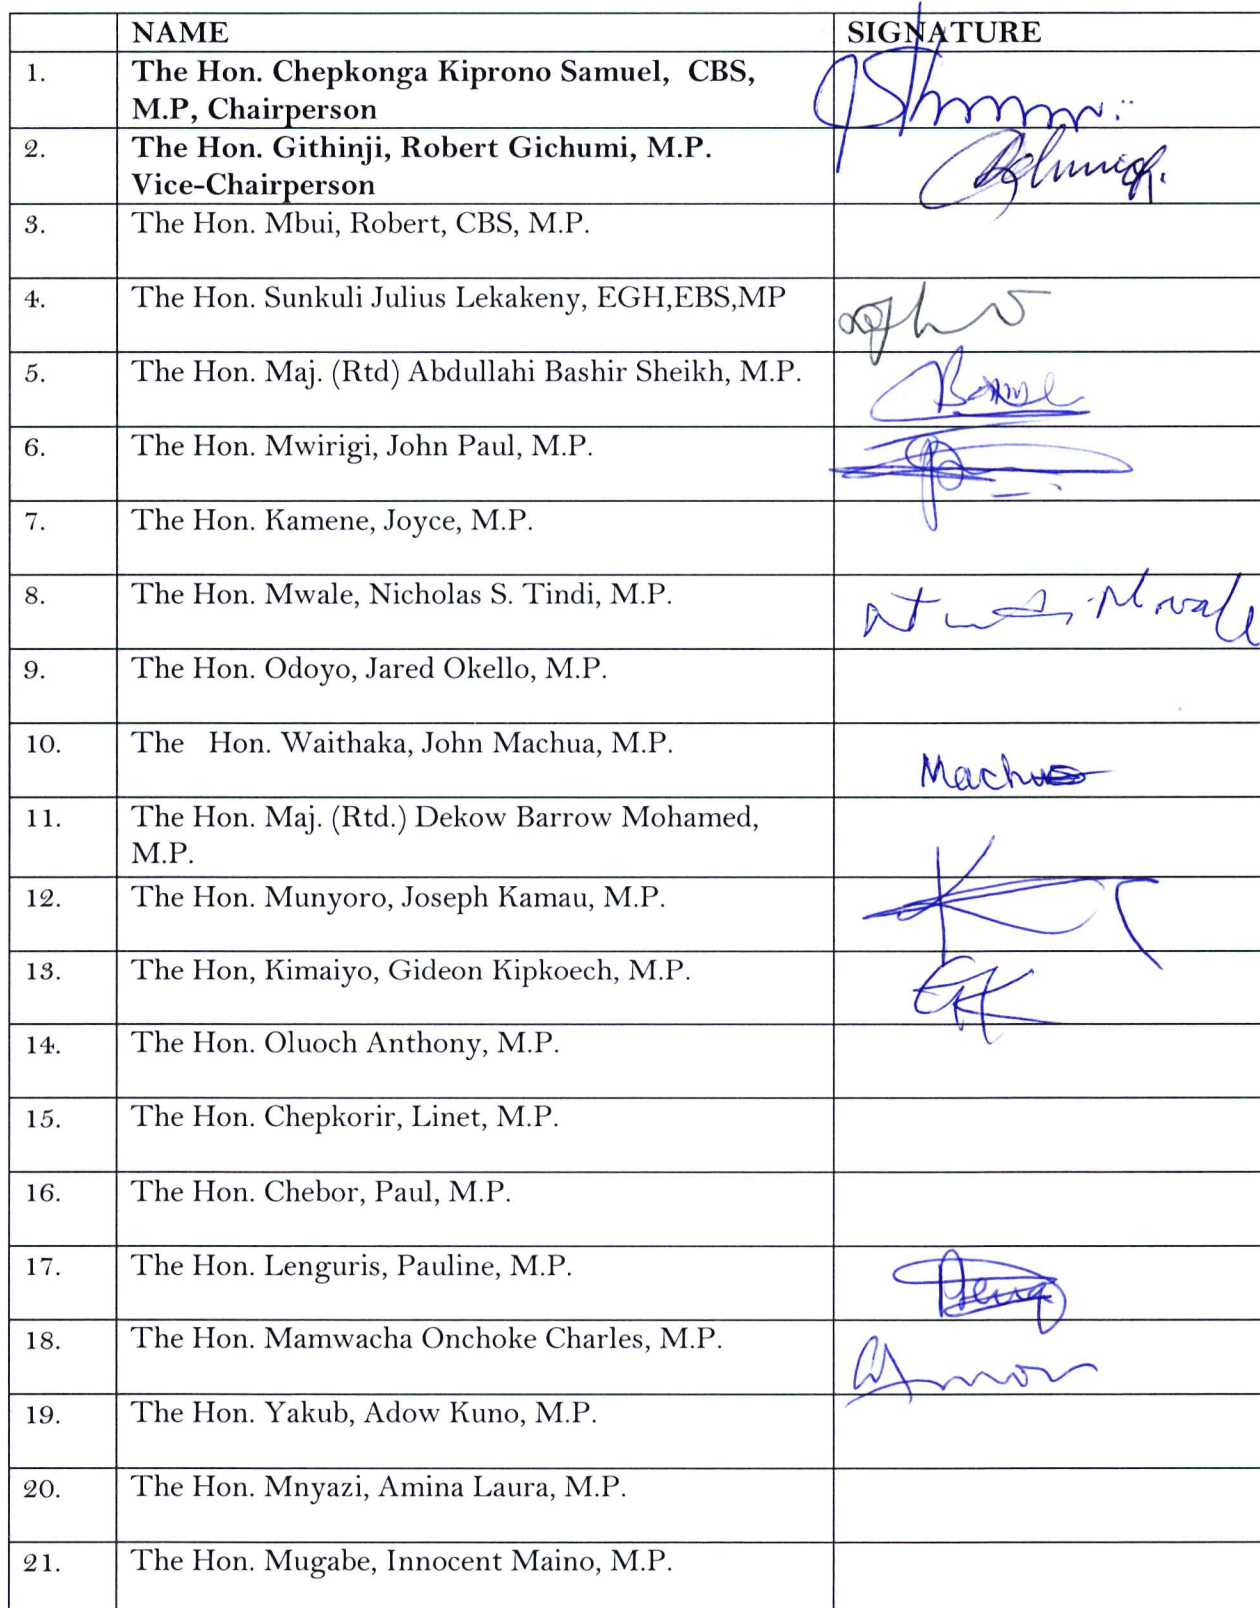 NAME SIGNATURE
1. The Hon. Chepkonga Kiprono Samuel, CBS,
M.P, Chairperson
2. The Hon. Githinji, Robert Gichumi, M.P.
Vice-Chairperson
3. The Hon. Mbui, Robert, CBS, M.P.
4. The Hon. Sunkuli Julius Lekakeny, EGH,EBS,MP
5. The Hon. Maj. (Rtd) Abdullahi Bashir Sheikh, M.P.
6. The Hon. Mwirigi, John Paul, M.P.
7. The Hon. Kamene, Joyce, M.P.
8. The Hon. Mwale, Nicholas S. Tindi, M.P. Mwale
9. The Hon. Odoyo, Jared Okello, M.P.
10. The Hon. Waithaka, John Machua, M.P. Machua
11. The Hon. Maj. (Rtd.) Dekow Barrow Mohamed,
M.P.
12. The Hon. Munyoro, Joseph Kamau, M.P.
13. The Hon, Kimaiyo, Gideon Kipkoech, M.P.
14. The Hon. Oluoch Anthony, M.P.
15. The Hon. Chepkorir, Linet, M.P.
16. The Hon. Chebor, Paul, M.P.
17. The Hon. Lenguris, Pauline, M.P.
18. The Hon. Mamwacha Onchoke Charles, M.P.
19. The Hon. Yakub, Adow Kuno, M.P.
20. The Hon. Mnyazi, Amina Laura, M.P.
21. The Hon. Mugabe, Innocent Maino, M.P.